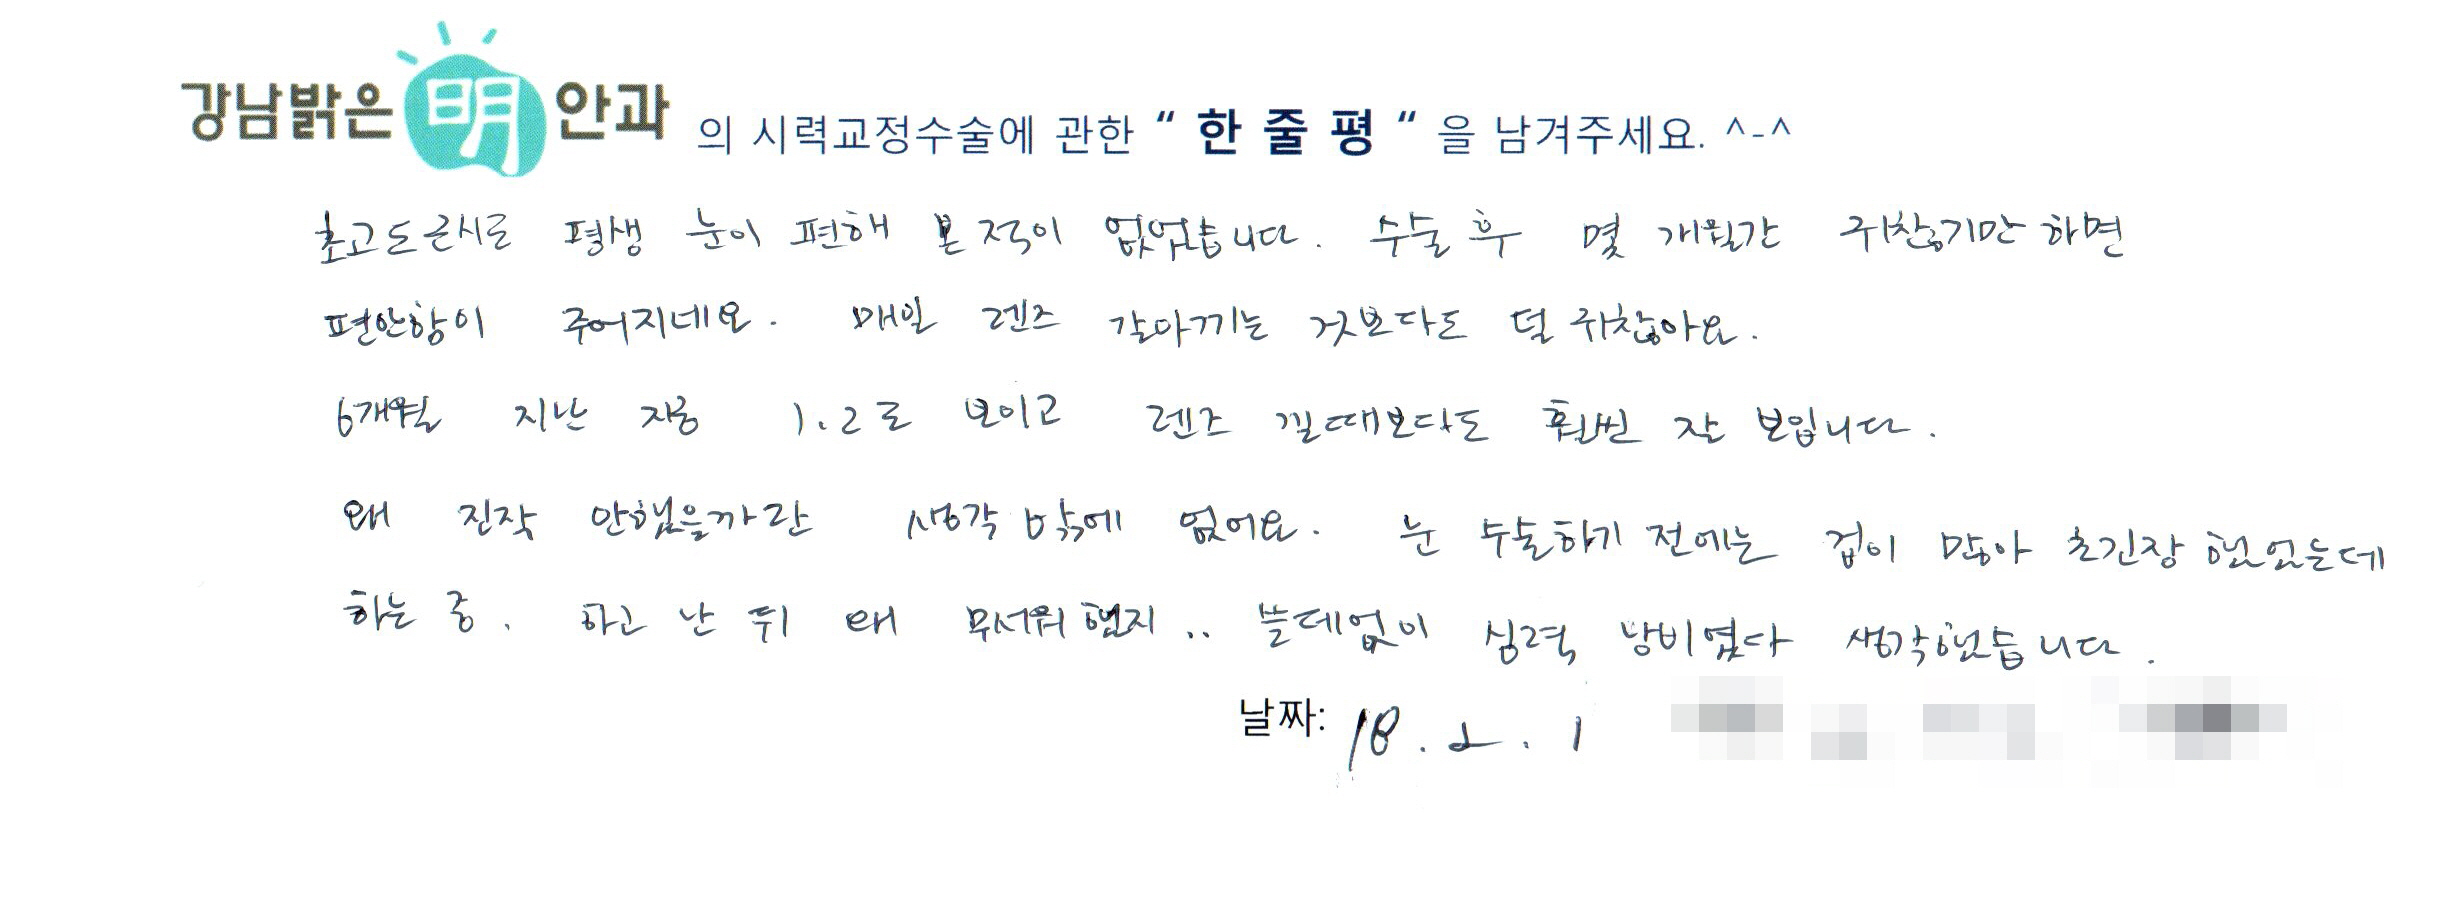 강남밝은 明 안과 의 시력교정수술에 관한 “ 한 줄 평 “ 을 남겨주세요. ^-^
초고도근시로 평생 눈이 편해 본 적이 없었습니다. 수술 후 몇 개월간 귀찮기만 하면
편안함이 주어지네요. 매일 렌즈 갈아끼는 것보다도 덜 귀찮아요.
6개월 지난 지금 1.2로 보이고 렌즈 낄때보다도 훨씬 잘 보입니다.
왜 진작 안했을까란 생각 밖에 없어요. 눈 수술하기 전에는 겁이 많아 초긴장 했었는데
하는 중. 하고 난 뒤 왜 무서워했지.. 쓸데없이 심력 낭비였다 생각했습니다.
날짜: 18. 2. 1